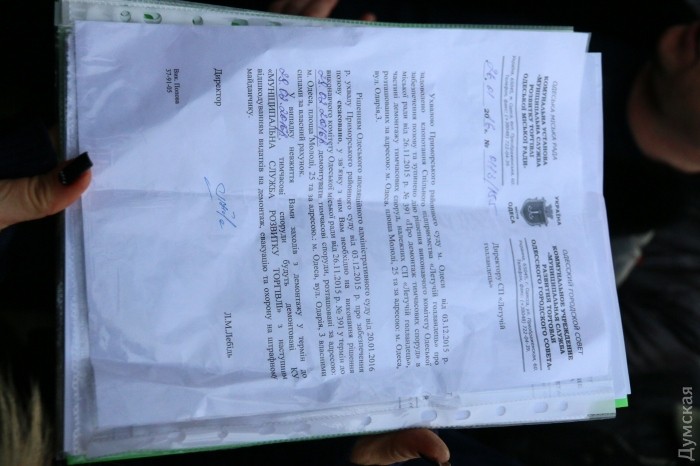 ОДЕСЬКА МІСЬКА РАДА
КОМУНАЛЬНА УСТАНОВА
«МУНІЦИПАЛЬНА СЛУЖБА
РОЗВИТКУ ТОРГІВЛІ
ОДЕСЬКОЇ МІСЬКОЇ РАДИ»
УКРАЇНА
ОДЕСА
ОДЕССКИЙ ГОРОДСКОЙ СОВЕТ
КОММУНАЛЬНОЕ УЧРЕЖДЕНИЕ
«МУНИЦИПАЛЬНАЯ СЛУЖБА
РАЗВИТИЯ ТОРГОВЛИ
ОДЕССКОГО ГОРОДСКОГО СОВЕТА»
№
Директору СП «Летучій
голландець»
Ухвалою Приморського районного суду м. Одеси від 03.12.2015 р.
задоволено клопотання Спільного підприємства «Летучій голландець» про
забезпечення позову та зупинено дію рішення виконавчого комітету Одеської
міської ради від 26.11.2015 р. № 391 «Про демонтаж тимчасових споруд» в
частині демонтажу тимчасових споруд, належних СП «Летучій голландець»,
розташованих за адресою: м. Одеса, площа Молоді, 25 та за адресою: м. Одеса,
вул. Одарія,3.
Рішенням Одеського апеляційного адміністративного суду від 20.01.2016
р. ухвалу Приморського районного суду від 03.12.2015 р. про забезпечення
позову скасовано, у зв'язку з чим Вам необхідно на виконання рішення
виконавчого комітету Одеської міської ради від 26.11.2015 р. № 391 у термін до
демонтувати тимчасові споруди, розташовані за адресою:
м. Одеса, площа Молоді, 25 та за адресою: м. Одеса, вул. Одарія, 3 власними
силами за власний рахунок.
У випадку невжиття Вами заходів з демонтажу у термін до
тимчасові споруди будуть демонтовані КУ
«МУНІЦИПАЛЬНА СЛУЖБА РОЗВИТКУ ТОРГІВЛІ» з наступним
відшкодуванням видатків на демонтаж, евакуацію та охорону на штрафному
майданчику.
Директор
Л.М.Лебіль
Вик. Попова
37-91-05
Думская